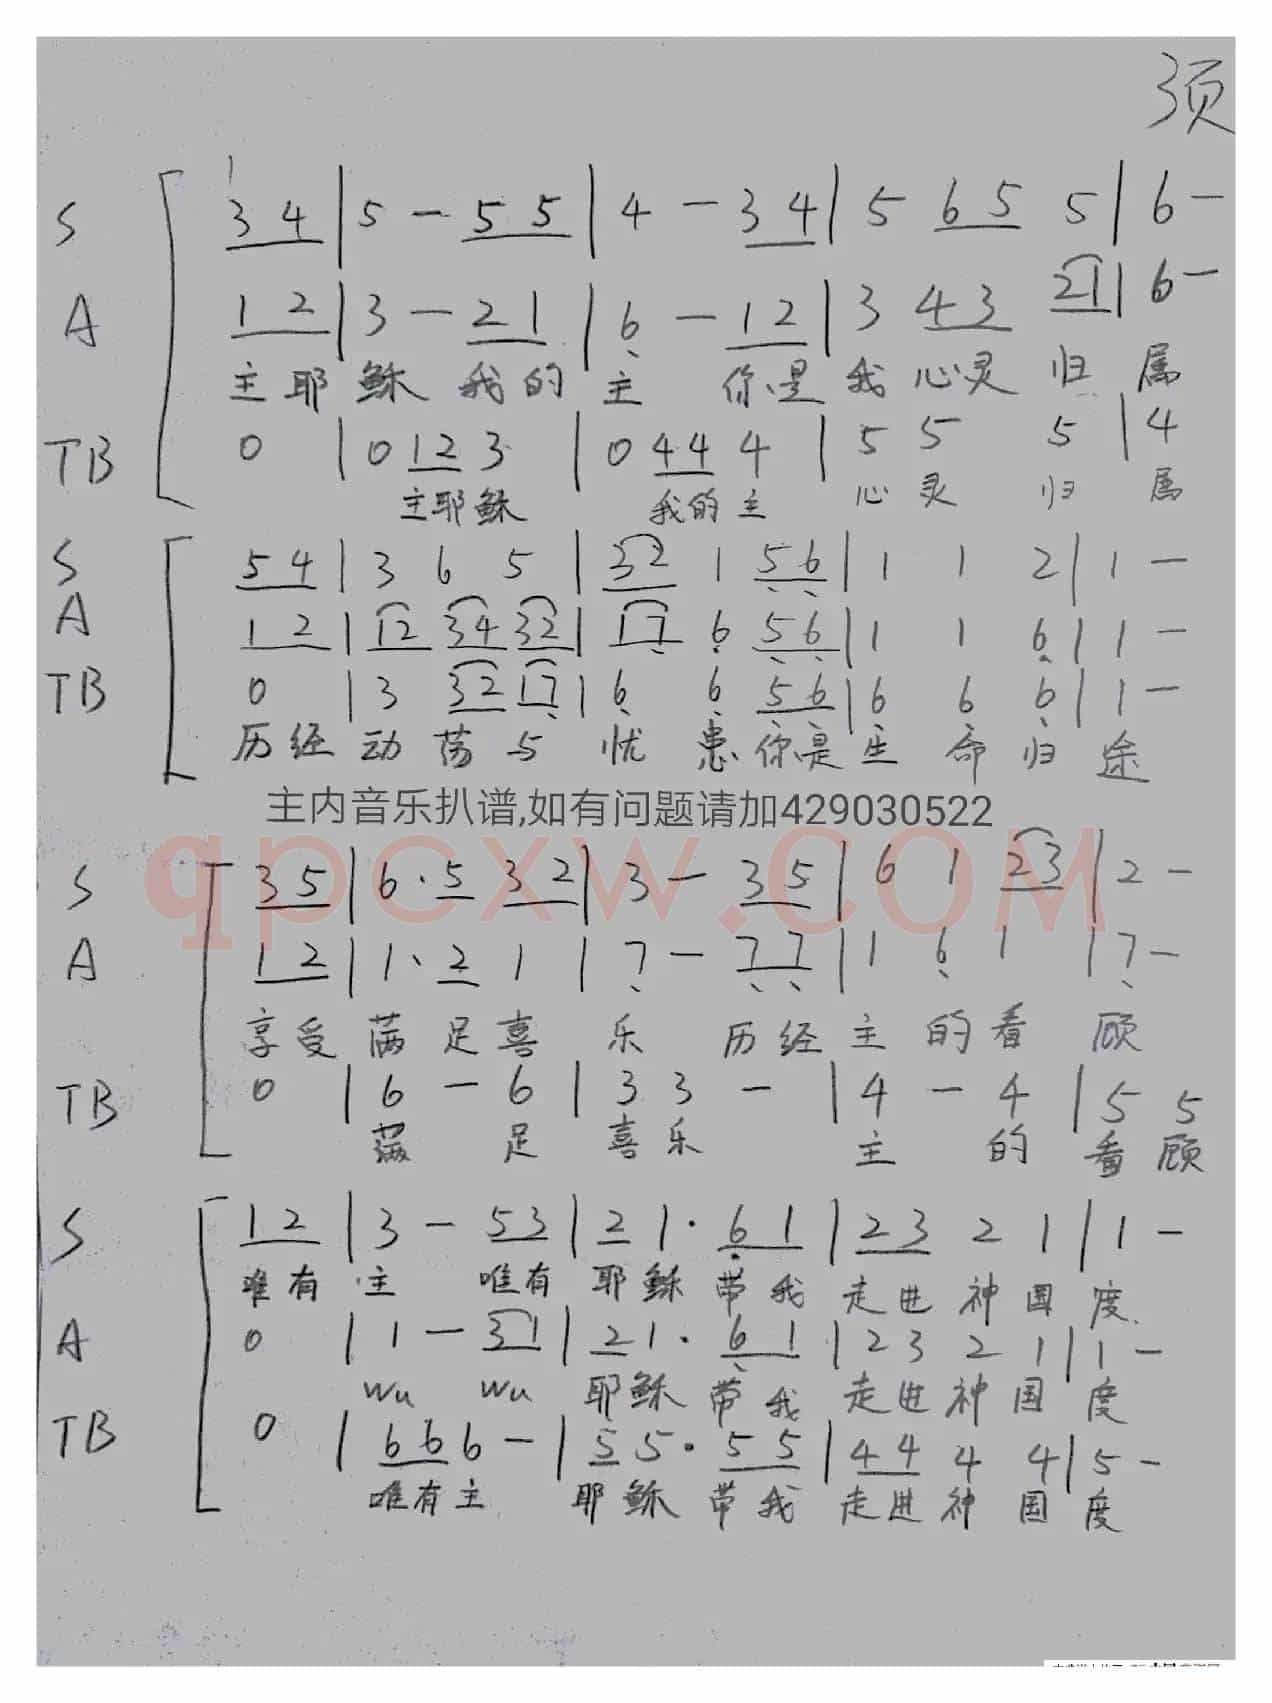 3页
S 3 4 | 5 - 5 5 | 4 - 3 4 | 5 6 5 5 | 6 -
A 1 2 | 3 - 2 1 | 6 - 1 2 | 3 4 3 2 1 | 6 -
主耶 稣 我的 主 你是 我 心灵 归 属
TB 0 | 0 1 2 3 | 0 4 4 4 | 5 5 5 | 4
主耶稣 我的主 心 灵 归 属
S 5 4 | 3 6 5 | 3 2 1 5 6 | 1 1 2 | 1 -
A 1 2 | 1 2 3 4 3 2 | 1 7 6 5 6 | 1 1 6 | 1 -
TB 0 | 3 3 2 1 7 | 6 6 5 6 | 6 6 6 | 1 -
历经 动 荡 与 忧 患 你是 生 命 归 途
主内音乐扒谱,如有问题请加429030522
qpcxw.com
S 3 5 | 6 · 5 3 2 | 3 - 3 5 | 6 1 2 3 | 2 -
A 1 2 | 1 · 2 1 | 7 - 7 7 | 1 6 1 | 7 -
享受 满 足 喜 乐 历经 主 的 看 顾
TB 0 | 6 - 6 | 3 3 - | 4 - 4 | 5 5
满 足 喜 乐 主 的 看 顾
S 1 2 | 3 - 5 3 | 2 1 · 6 1 | 2 3 2 1 | 1 -
唯有 主 唯有 耶 稣 带我 走进 神 国 度
A 0 | 1 - 3 1 | 2 1 · 6 1 | 2 3 2 1 | 1 -
wu wu 耶稣 带我 走进 神 国 度
TB 0 | 6 6 6 - | 5 5 · 5 5 | 4 4 4 4 | 5 -
唯有主 耶 稣 带我 走进 神 国 度